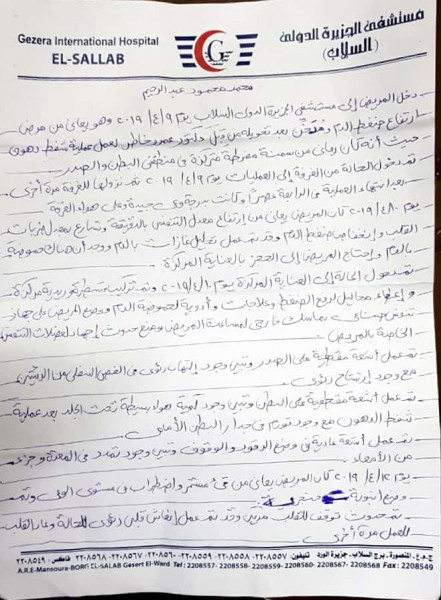 Gezera International Hospital
EL-SALLAB
مستشفى الجزيرة الدولى
(السلاب)
محمد محمود عبد الرحيم
- دخل المريض إلى مستشفى الجزيرة الدولى السلاب يوم ٢٠١٩/٤/٩ وهو يعانى من مرض
ارتفاع ضغط الدم بعد تحويله من قبل دكتور عمرو خاطر لعمل عملية شفط دهون
حيث أنه كان يعانى من سمنة مفرطة متركزة فى منطقتى البطن والصدر
- تم دخول الحالة من الغرفة إلى العمليات يوم ٢٠١٩/٤/٩ تم نزولها للغرفة مرة أخرى
بعد انتهاء العملية فى الرابعة عصراً وكانت بدرجة وعى جيدة وعلى هواء الغرفة
- يوم ٢٠١٩/٤/١٠ كان المريض يعانى من ارتفاع معدل التنفس بالدقيقة وتسارع بمعدل ضربات
القلب وانخفاض ضغط الدم وقد تم عمل تحليل غازات بالدم ووجد أن هناك حموضة
بالدم واحتاج المريض إلى الحجز بالعناية المركزة
- تم دخول الحالة إلى العناية المركزة يوم ٢٠١٩/٤/١٠ وتم تركيب قسطرة وريدية مركزية
و إعطاء محاليل لرفع الضغط وعلاجات وأدوية لحموضة الدم ووضع المريض على جهاز
تنفس صناعى بماسك خارجى لمساعدة المريض ومنع حدوث إجهاد لعضلات التنفس
الخاصة بالمريض
- تم عمل أشعة مقطعية على الصدر وتبين وجود إلتهاب رئوى فى الفص السفلى من الرئتين
مع وجود إرتشاح رئوى
- تم عمل أشعة مقطعية على البطن وتبين وجود كمية هواء بسيطة تحت الجلد بعد عملية
شفط الدهون مع وجود تورم فى جدار البطن الأمامى
- تم عمل أشعة عادية فى وضع الرقود والوقوف وتبين وجود تمدد فى المعدة وجزء
من الأمعاء
- يوم ٢٠١٩/٤/١٢ كان المريض يعانى من قئ مستمر واضطراب فى مستوى الوعى وتم
وضع أنبوبة حنجرية
- تم حدوث توقف للقلب مرتين وقد تم عمل إنعاش قلبى رئوى للحالة وعاد القلب
للعمل مرة أخرى
ج.م.ع - المنصورة - برج السلاب - جزيرة الورد تليفون : ٢٢٠٨٥٥٧ - ٢٢٠٨٥٥٨ - ٢٢٠٨٥٥٩ - ٢٢٠٨٥٦٠ - ٢٢٠٨٥٦٧ - ٢٢٠٨٥٦٨ فاكس : ٢٢٠٨٥٤٩
A.R.E-Mansoura-BORG EL-SALLAB Gesert El-Ward Tel : 2208557- 2208558- 2208559- 2208560- 2208567- 2208568 Fax : 2208549